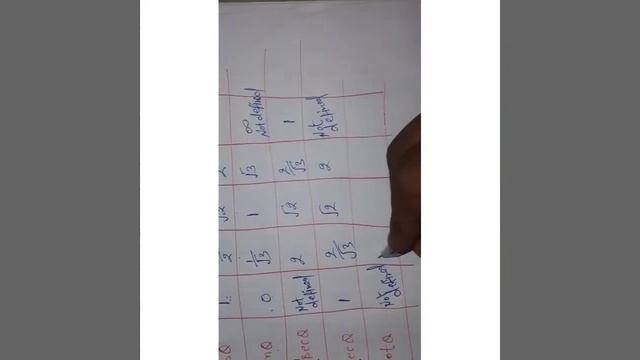 sQ 1 2 √2 2
nQ 0 1/√3 1 √3 ∞ Not defined
secQ Not defined 2 √2 2/√3 1
ecQ 1 2/√3 √2 2 Not defined
otQ Not defined